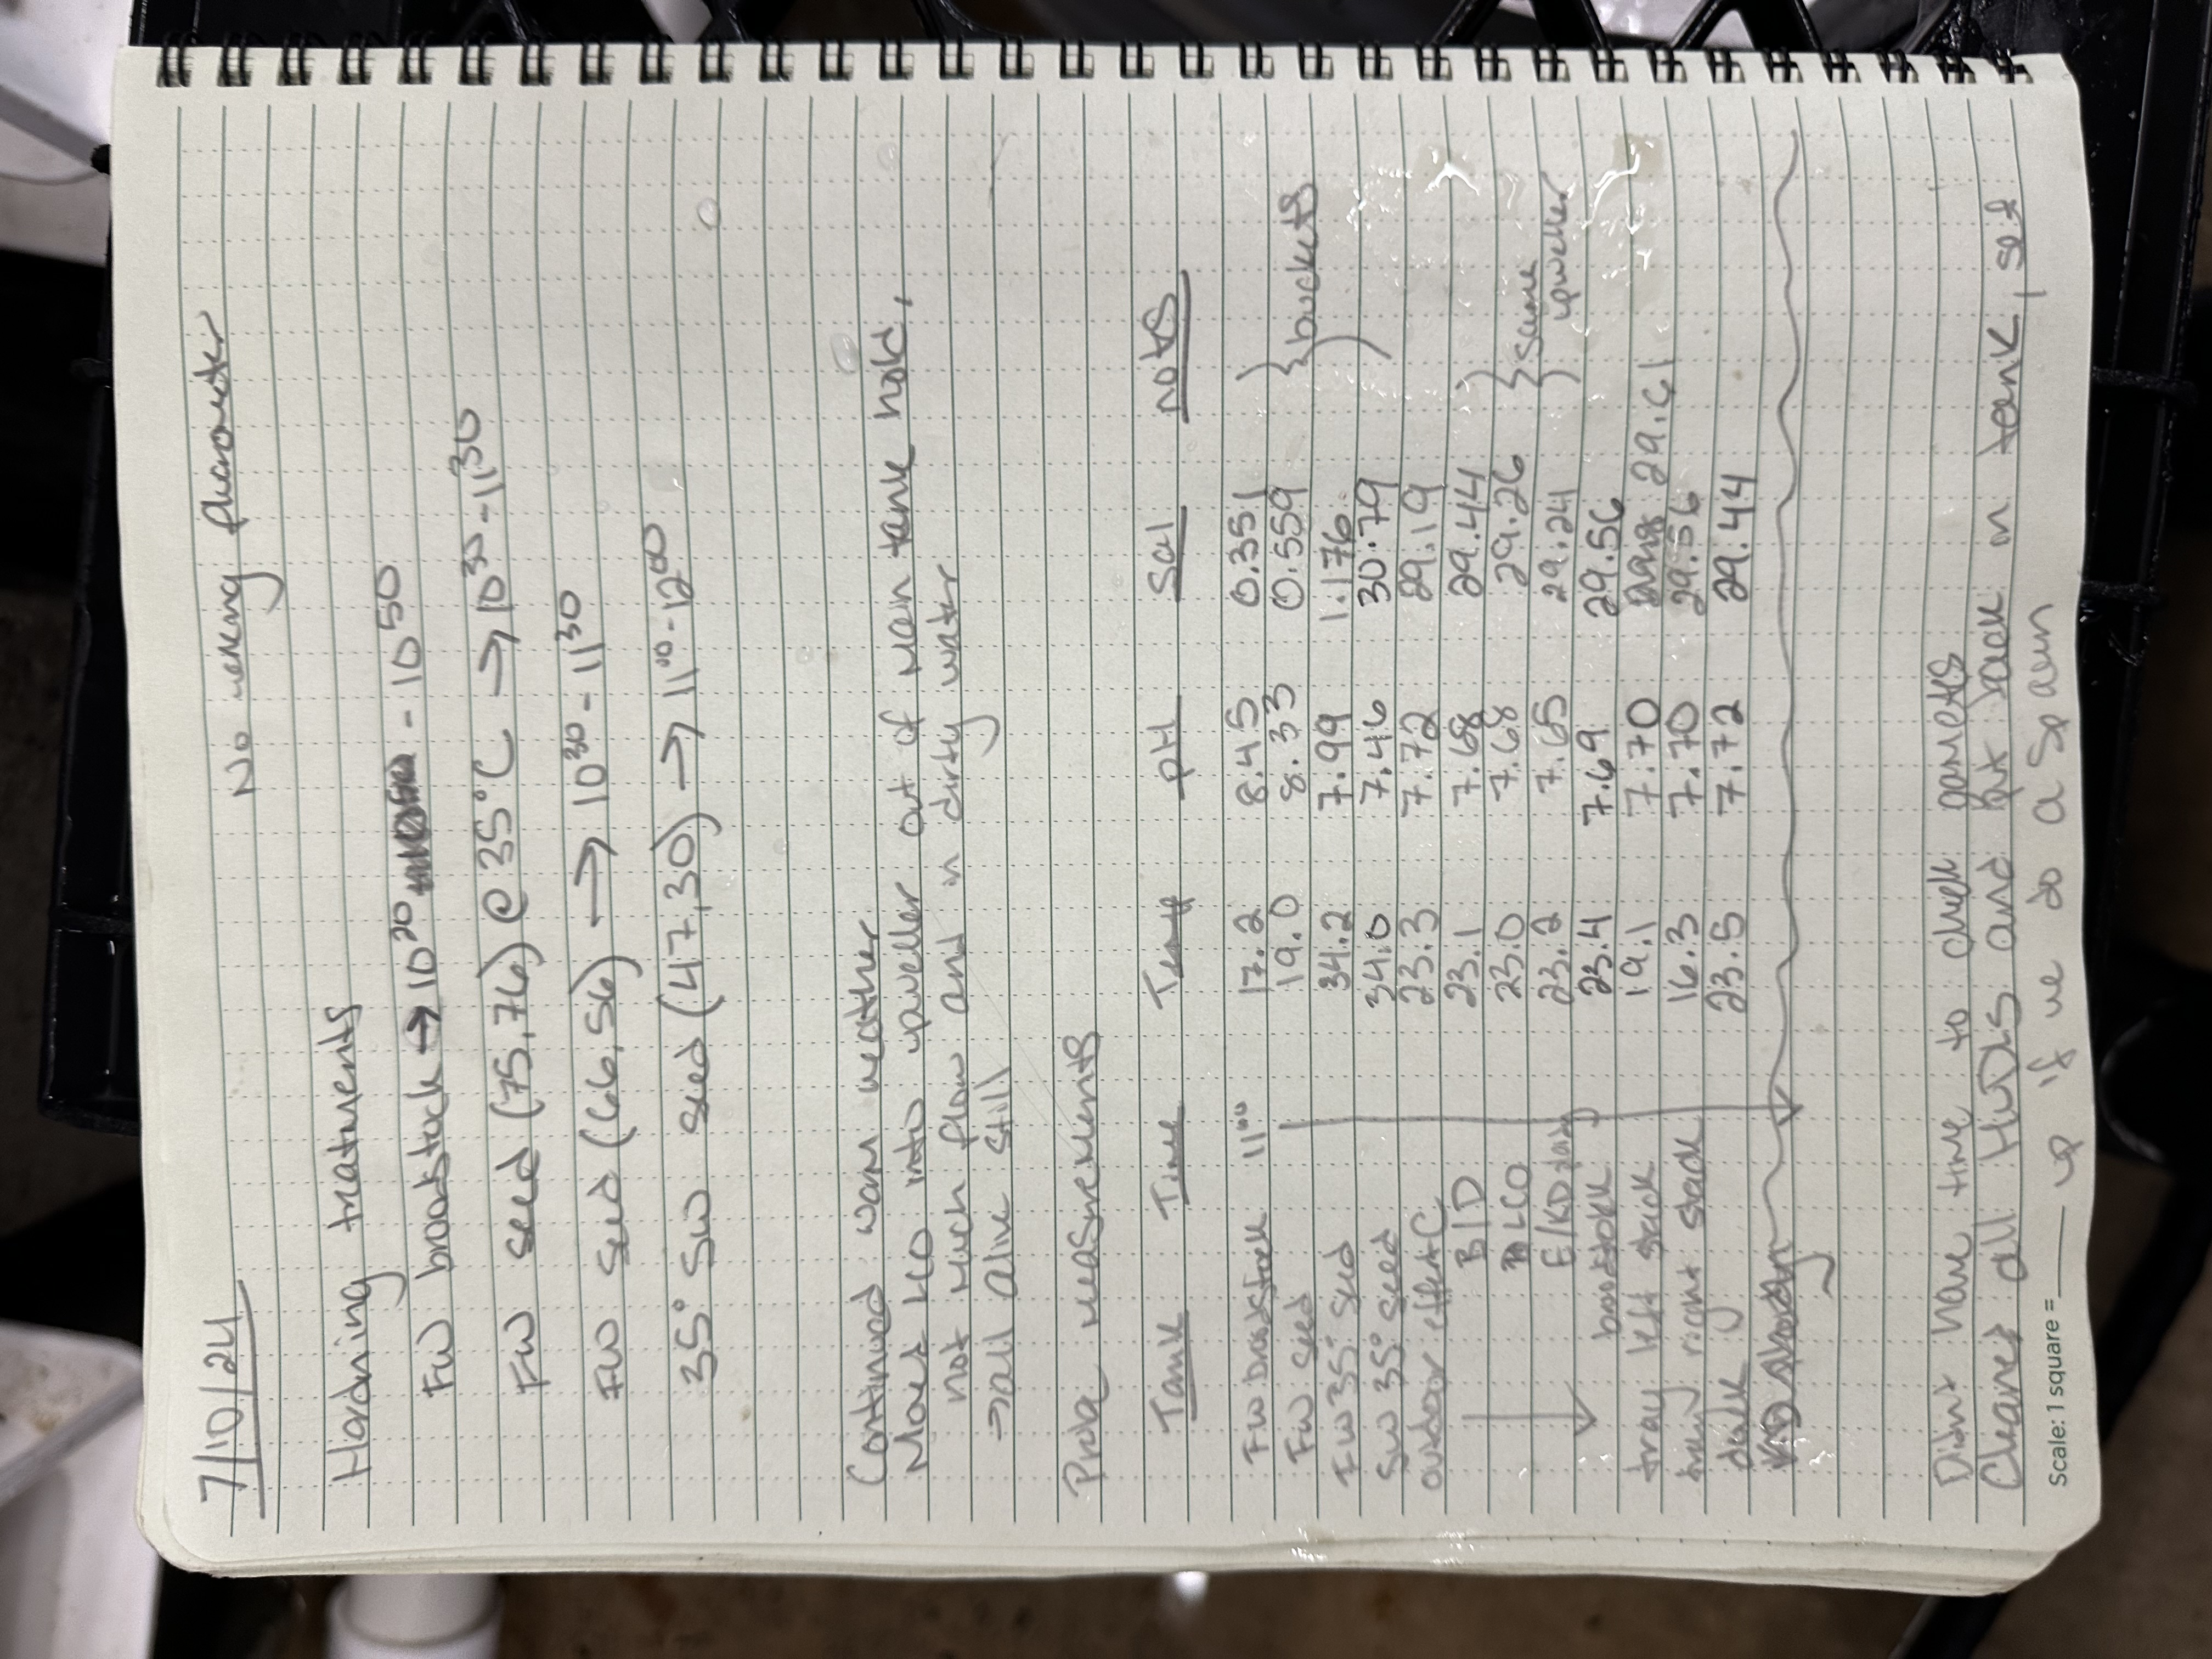 7/10/24
No working fluorometer
Hardning treatments
FW broodstock → 10²⁰ - 10⁵⁰
FW seed (75,76) @ 35°C → 10³⁰-11³⁰
FW seed (66,56) → 10³⁰-11³⁰
35° SW seed (47,30) → 11⁰⁰-12⁰⁰
Continued warm weather
Moved LCO into upweller out of main tank hold,
not much flow and in dirty water
→ all alive still
Probe measurements
Tank Time Temp pH Sal notes
FW broodstock 11⁰⁰ 17.2 8.45 0.351
FW seed 19.0 8.33 0.559 } buckets
FW 35° seed 34.2 7.99 1.176
SW 35° seed 34.0 7.46 30.79
outdoor effort C 23.3 7.72 29.19
B/D 23.1 7.68 29.44
LCO 23.0 7.68 29.26 } same
E/KD study 23.2 7.65 29.24 upweller
broodstokk 23.4 7.69 29.56
tray left stack 19.1 7.70 29.61
tray right stack 16.3 7.70 29.56
dock 23.5 7.72 29.44
KD study
Didn't have time to check gametes
Cleaned all HuDLs and put back in tank, set
Scale: 1 square = up if we do a spawn